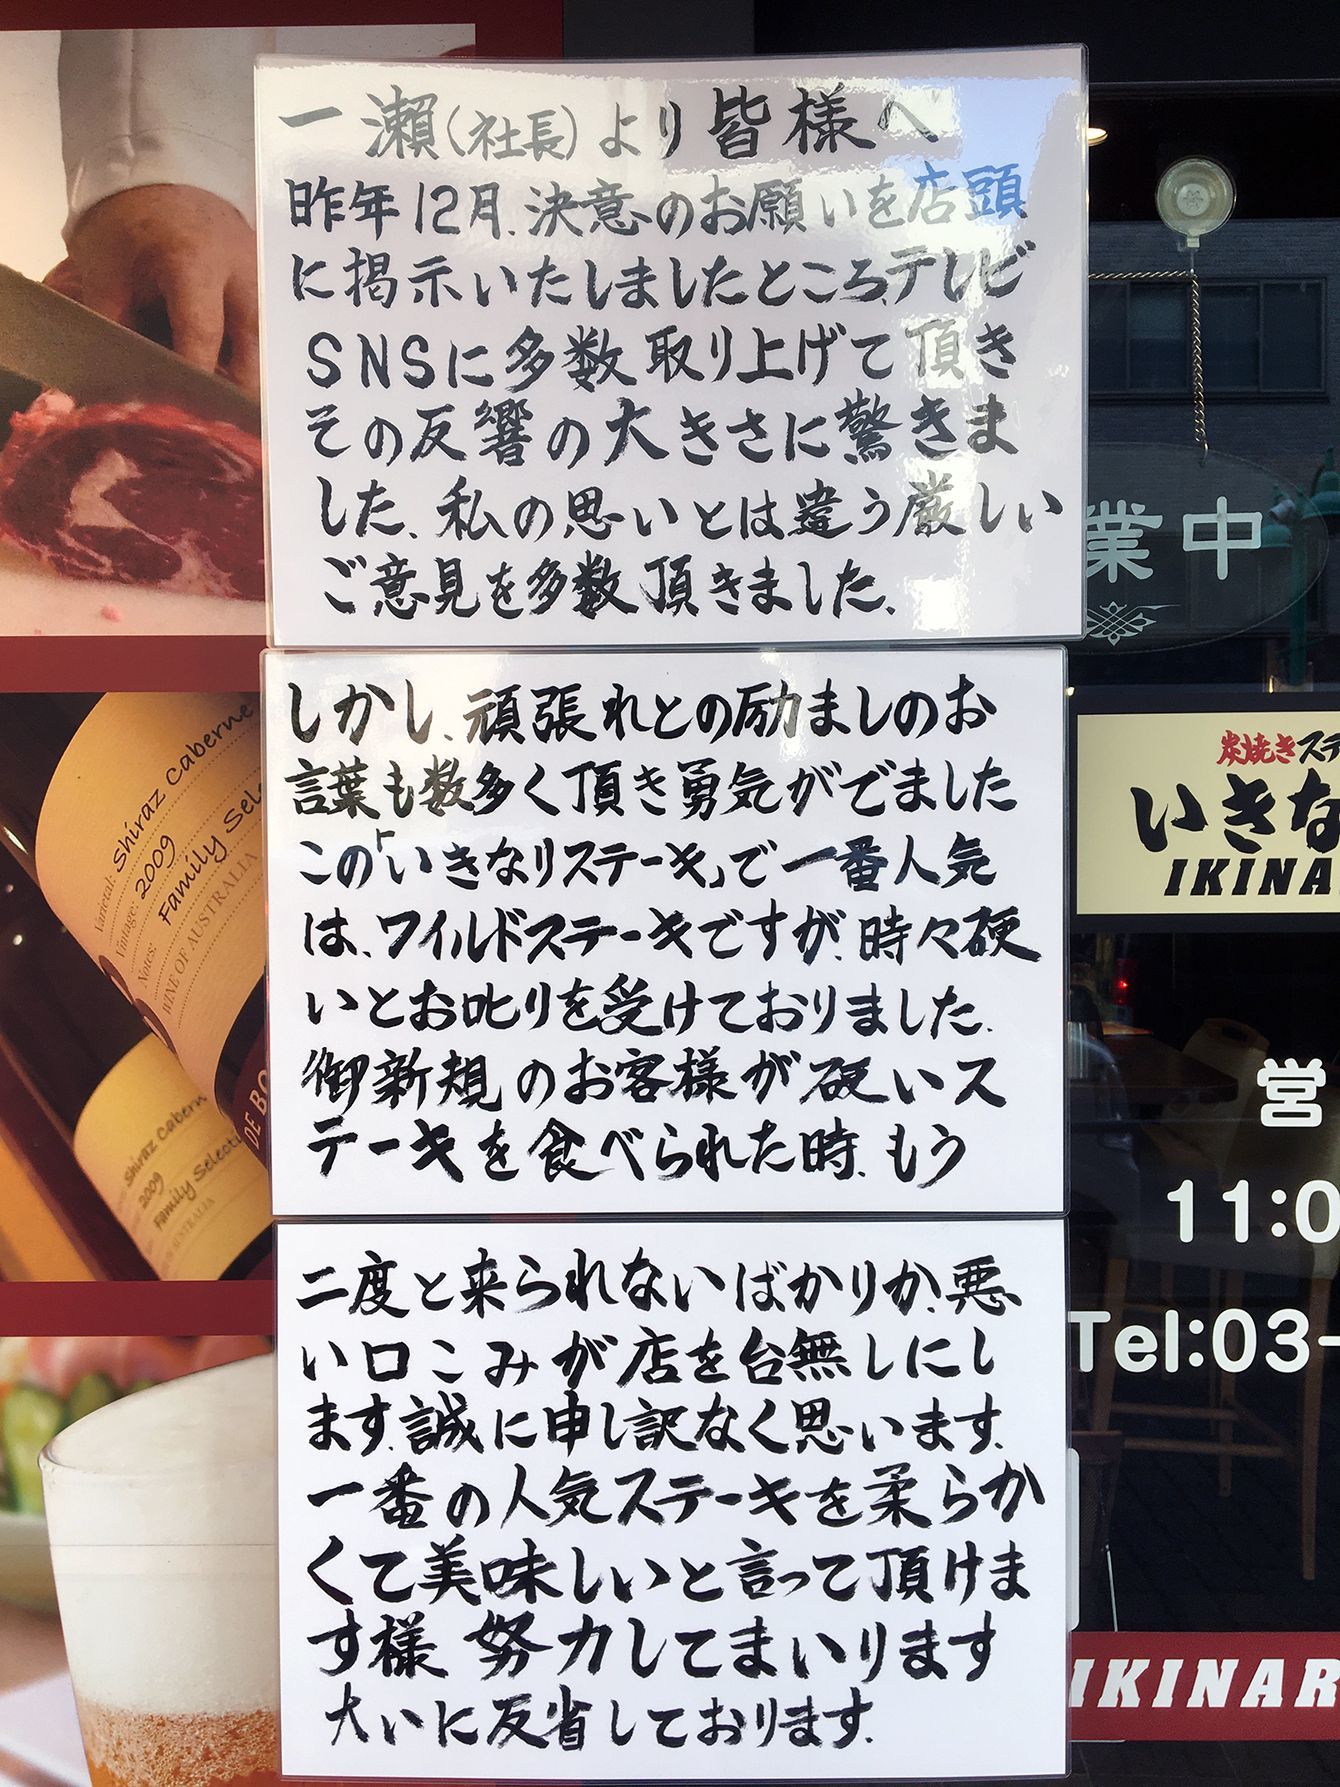 一瀬（社長）より皆様へ
昨年12月、決意のお願いを店頭
に掲示いたしましたところ、テレビ
SNSに多数取り上げて頂き
その反響の大きさに驚きま
した、私の思いとは違う厳しい
ご意見を多数頂きました、
しかし、頑張れとの励ましのお
言葉も数多く頂き勇気がでました
この「いきなりステーキ」で一番人気
は、ワイルドステーキですが、時々硬
いとお叱りを受けております.
御新規のお客様が硬いス
テーキを食べられた時、もう
二度と来られないばかりか、悪
い口こみが店を台無しにし
ます、誠に申し訳なく思います、
一番の人気ステーキを柔らか
くて美味しいと言って頂けま
す様 努力してまいります
大いに反省しております.
業中
炭焼きステ
いきな
IKINA
営
11:0
Tel:03-
IKINAR
Varietal: Shiraz Caberne
Vintage: 2009
Notes: Family Sele
WINE OF AUSTRALIA
DE BO
Shiraz Cabern
2009
Family Selecti